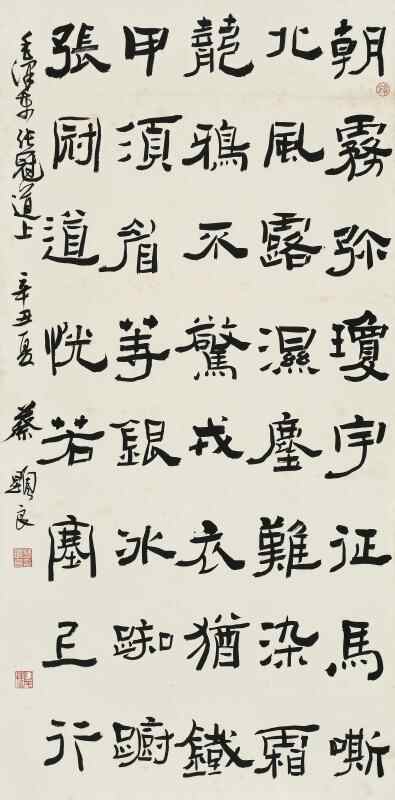 朝霧弥瓊宇征馬嘶
北風露濕塵難染霜
龍鴉不驚戎衣猶鐵
甲須眉等銀冰踟躕
張冠道恍若塞上行
毛澤東張冠道上 辛丑夏 蔡顯良